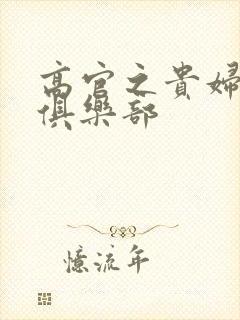 高官之貴婦
俱樂部
憶流年